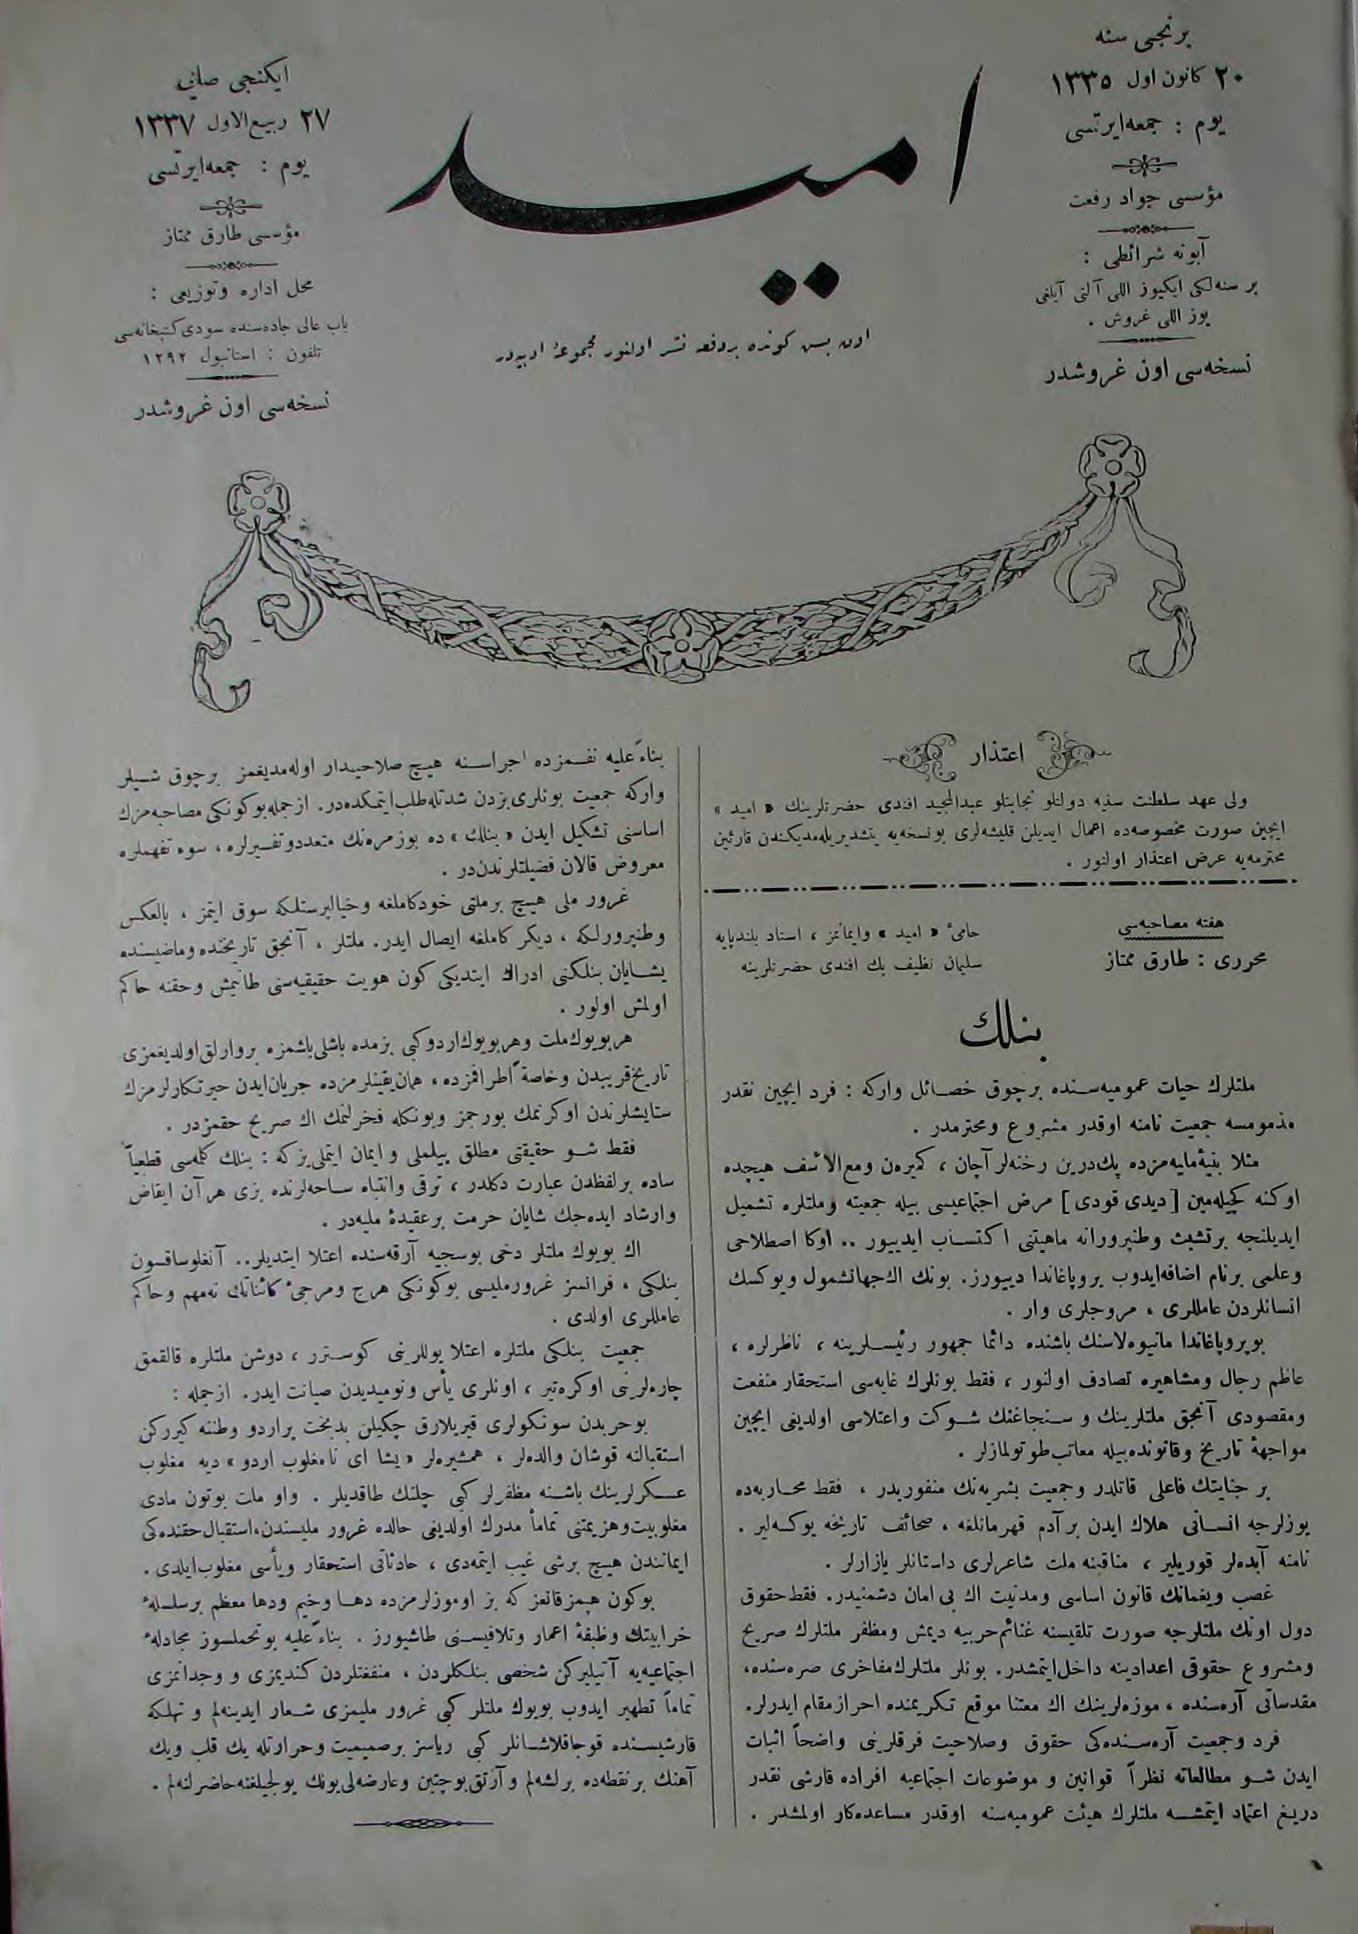 برنجی سنه
٢٠ كانون اول ١٣٣٥
يوم : جمعه‌ايرتسی
مؤسسی جواد رفعت
آبونه شرائطی :
بر سنه‌لكی ايكيوز اللی آلتی آيلغی
يوز اللی غروش .
نسخه‌سی اون غروشدر
اميد
اون بش كونده بردفعه نشر اولنور مجموعهٔ ادبيه‌در
ايكنجی صایی
٢٧ ربيع‌الاول ١٣٣٧
يوم : جمعه‌ايرتسی
مؤسسی طارق ممتاز
محل اداره وتوزيعی :
باب عالی جاده‌سنده سودی كتبخانه‌سی
تلفون : استانبول ١٢٩٢
نسخه‌سی اون غروشدر
اعتذار
ولی عهد سلطنت سنيه دولتلو نجابتلو عبدالمجيد افندی حضرتلرينك « اميد »
ايچين صورت مخصوصه‌ده اعمال ايديلن قليشه‌لری بونسخه‌يه يتشديريله‌مديكندن قارئين
محترمه‌يه عرض اعتذار اولنور .
هفته مصاحبه‌سی
محرری : طارق ممتاز
حامیٔ « اميد » وايمانمز ، استاد بلندپايه
سليمان نظيف بك افندی حضرتلرينه
بنلك
ملتلرك حيات عموميه‌سنده برچوق خصائل واركه : فرد ايچين نقدر
مذمومسه جمعيت نامنه اوقدر مشروع ومحترمدر .
مثلا بنيهٔ مايه‌مزده پك‌درين رخنه‌لر آچان ، كميرەن ومع‌الاسف هيچده
اوكنه كچيله‌مين [ ديدی قودی ] مرض اجتماعيسی بيله جمعيته وملتلره تشميل
ايديلنجه برتشبث وطنپرورانه ماهيتنی اكتساب ايدييور .. اوكا اصطلاحی
وعلمی برنام اضافه‌ايدوب پروپاغاندا دييورز. بونك اك‌جهانشمول ويوكسك
انسانلردن عامللری ، مروجلری وار .
بوپروپاغاندا مانيوه‌لاسنك باشنده دائما جمهور رئيسلرينه ، ناظرلره ،
عاظم رجال ومشاهيره تصادف اولنور ، فقط بونلرك غايه‌سی استحقار منفعت
ومقصودی آنجق ملتلرينك وسنجاغنك شوكت واعتلاسی اولديغی ايچين
مواجههٔ تاريخ وقانونده‌بيله معاتب‌طوتولمازلر .
بر جنايتك فاعلی قاتلدر وجمعيت بشريه‌نك منفوريدر ، فقط محاربه‌ده
يوزلرجه انسانی هلاك ايدن برآدم قهرمانلغه ، صحائف تاريخه يوكسه‌لير .
نامنه آبده‌لر قوريلير ، مناقبنه ملت شاعرلری داستانلر يازارلر .
غصب ويغمانك قانون اساسی ومدنيت اك بی‌امان دشمنيدر. فقط حقوق
دول اونك ملتلرجه صورت تلقيسنه غنائم‌حربيه ديمش ومظفر ملتلرك صريح
ومشروع حقوقی اعدادينه داخل‌ايتمشدر. بونلر ملتلرك‌مفاخری صره‌سنده،
مقدساتی آره‌سنده ، موزه‌لرينك اك معتنا موقع تكريمنده احرازمقام ايدرلر.
فرد وجمعيت آره‌سنده‌كی حقوق وصلاحيت فرقلرينی واضحاً اثبات
ايدن شو مطالعاته نظراً قوانين و موضوعات اجتماعيه افراده قارشی نقدر
دريغ اعتماد ايتمشسه ملتلرك هيئت عموميه‌سنه اوقدر مساعده‌كار اولمشدر .
بناءً عليه نفسمزده اجراسنه هيچ صلاحيدار اوله‌مديغمز برچوق شيلر
واركه جمعيت بونلری‌بزدن شدتله‌طلب‌ايتمكده‌در. ازجمله‌بوكونكی مصاحبه‌مزك
اساسنی تشكيل ايدن « بنلك » ده بوزمره‌نك متعددوتفسيرلره ، سوء تفهملره
معروض قالان فضيلتلرندن‌در .
غرور ملی هيچ برملتی خودكاملغه وخيالپرستلكه سوق ايتمز ، بالعكس
وطنپرورلكه ، ديكر كاملغه ايصال ايدر. ملتلر ، آنجق تاريخنده وماضيسنده
يشايان بنلكنی ادراك ايتديكی كون هويت حقيقيه‌سنی طانيمش وحقنه حاكم
اولمش اولور .
هربويوك‌ملت وهربويوك‌اردوكبی بزمده باشلی‌باشمزه بروارلق‌اولديغمزی
تاريخ‌قريبدن وخاصةً اطرافمزده ، همان‌يقينلرمزده جريان‌ايدن حيرتكارلرمزك
ستايشلرندن اوكرنمك بورجمز وبونكله فخرلنمك اك صريح حقمزدر .
فقط شو حقيقتی مطلق بيلملی و ايمان ايتملی‌يزكه : بنلك كلمه‌سی قطعياً
ساده برلفظدن عبارت دكلدر ، ترقی وانتباه ساحه‌لرنده بزی هرآن ايقاض
وارشاد ايده‌جك شايان حرمت برعقيدهٔ مليه‌در .
اك بويوك ملتلر دخی بوسجيه آرقه‌سنده اعتلا ايتديلر.. آنغلوساقسون
بنلكی ، فرانسز غرورمليسی بوكونكی هرج ومرجیٔ كائناتك نه‌مهم وحاكم
عامللری اولدی .
جمعيت بنلكی ملتلره اعتلا يوللرينی كوسترر ، دوشن ملتلره قالقمق
چاره‌لرينی اوكره‌تير ، اونلری يأس ونوميديدن صيانت ايدر. ازجمله :
بوحربدن سونكولری قيريلارق چكيلن بدبخت براردو وطننه كيرركن
استقبالنه قوشان والده‌لر ، همشيره‌لر « يشا ای نامغلوب اردو » ديه مغلوب
عسكرلرينك باشنه مظفرلر كبی چلنك طاقديلر . واو ملت بوتون مادی
مغلوبيت‌وهزيمتنی تماماً مدرك اولديغی حالده غرور مليسندن،استقبال حقنده‌كی
ايمانندن هيچ برشی غيب ايتمه‌دی ، حادثاتی استحقار ويأسی مغلوب‌ايلدی.
بوكون هپمزقانعز كه بز اوموزلرمزده دها وخيم ودها معظم برسلسلهٔ
خرابيتك وظيفهٔ اعمار وتلافيسنی طاشيورز . بناءً عليه بوتحملسوز مجادلهٔ
اجتماعيه‌يه آتيليركن شخصی بنلكلردن ، منفعتلردن كنديمزی و وجدانمزی
تماماً تطهير ايدوب بويوك ملتلر كبی غرور مليمزی شعار ايدينه‌لم و تهلكه
قارشيسنده قوجاقلاشانلر كبی رياسز برصميميت وحرارتله يك قلب ويك
آهنك برنقطه‌ده برلشه‌لم وآرتق‌بوچتين وعارضه‌لی‌يونك يولجيلغنه‌حاضرلنه‌لم .